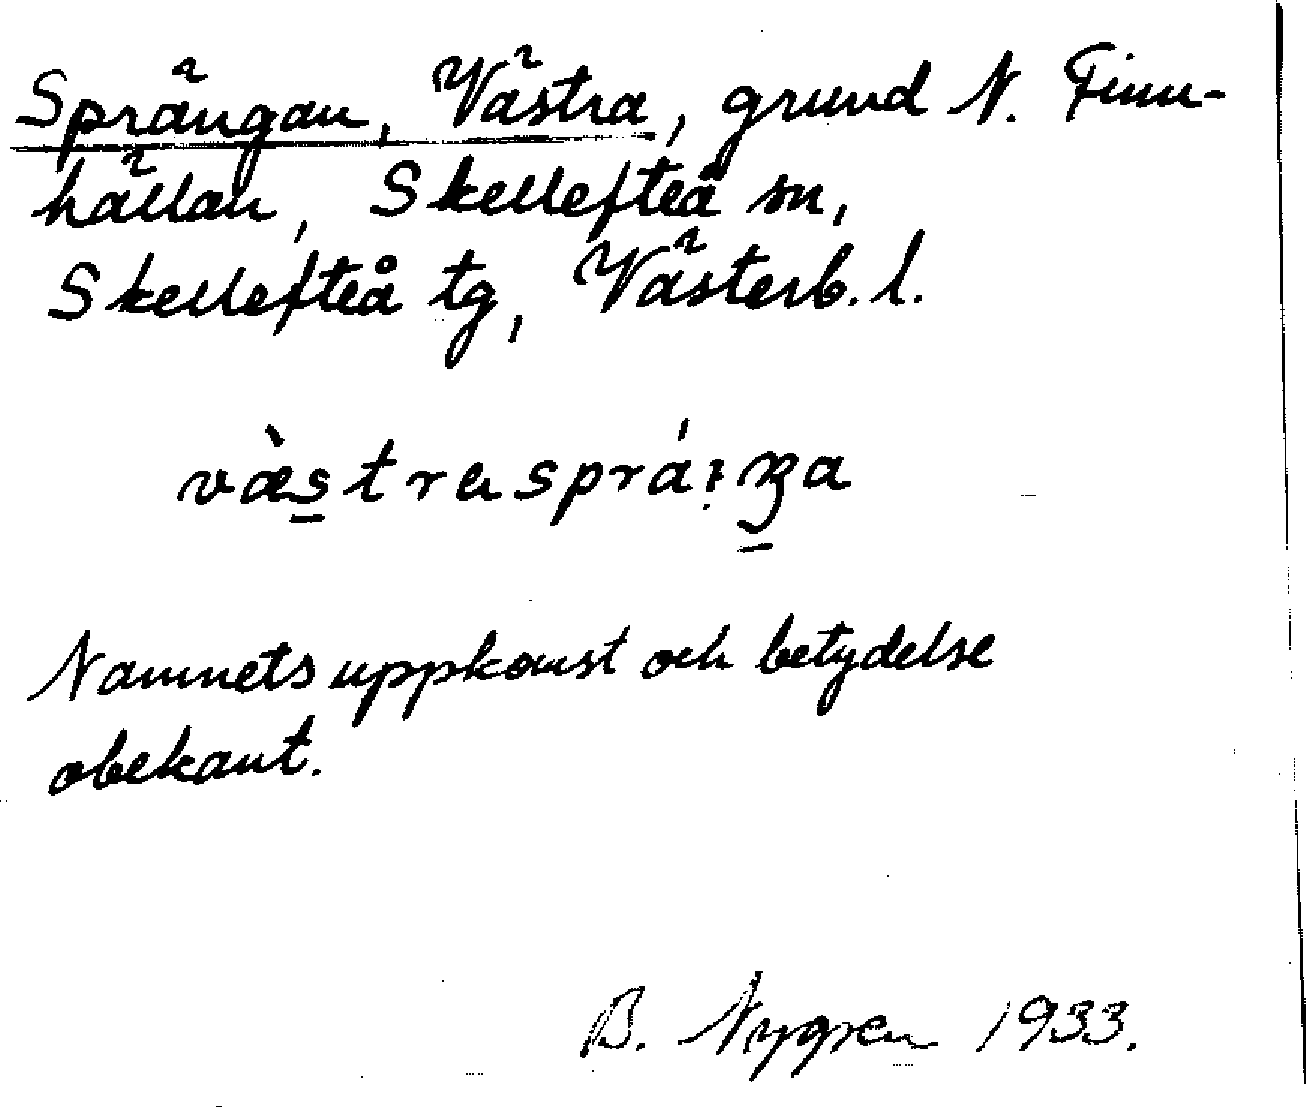 Sprängan, Västra, grund N. Finn-
hällan, Skellefteå sn,
Skellefteå tg, Västerb. l.
Namnets uppkomst och betydelse
obekant.
B. Nygren 1933.